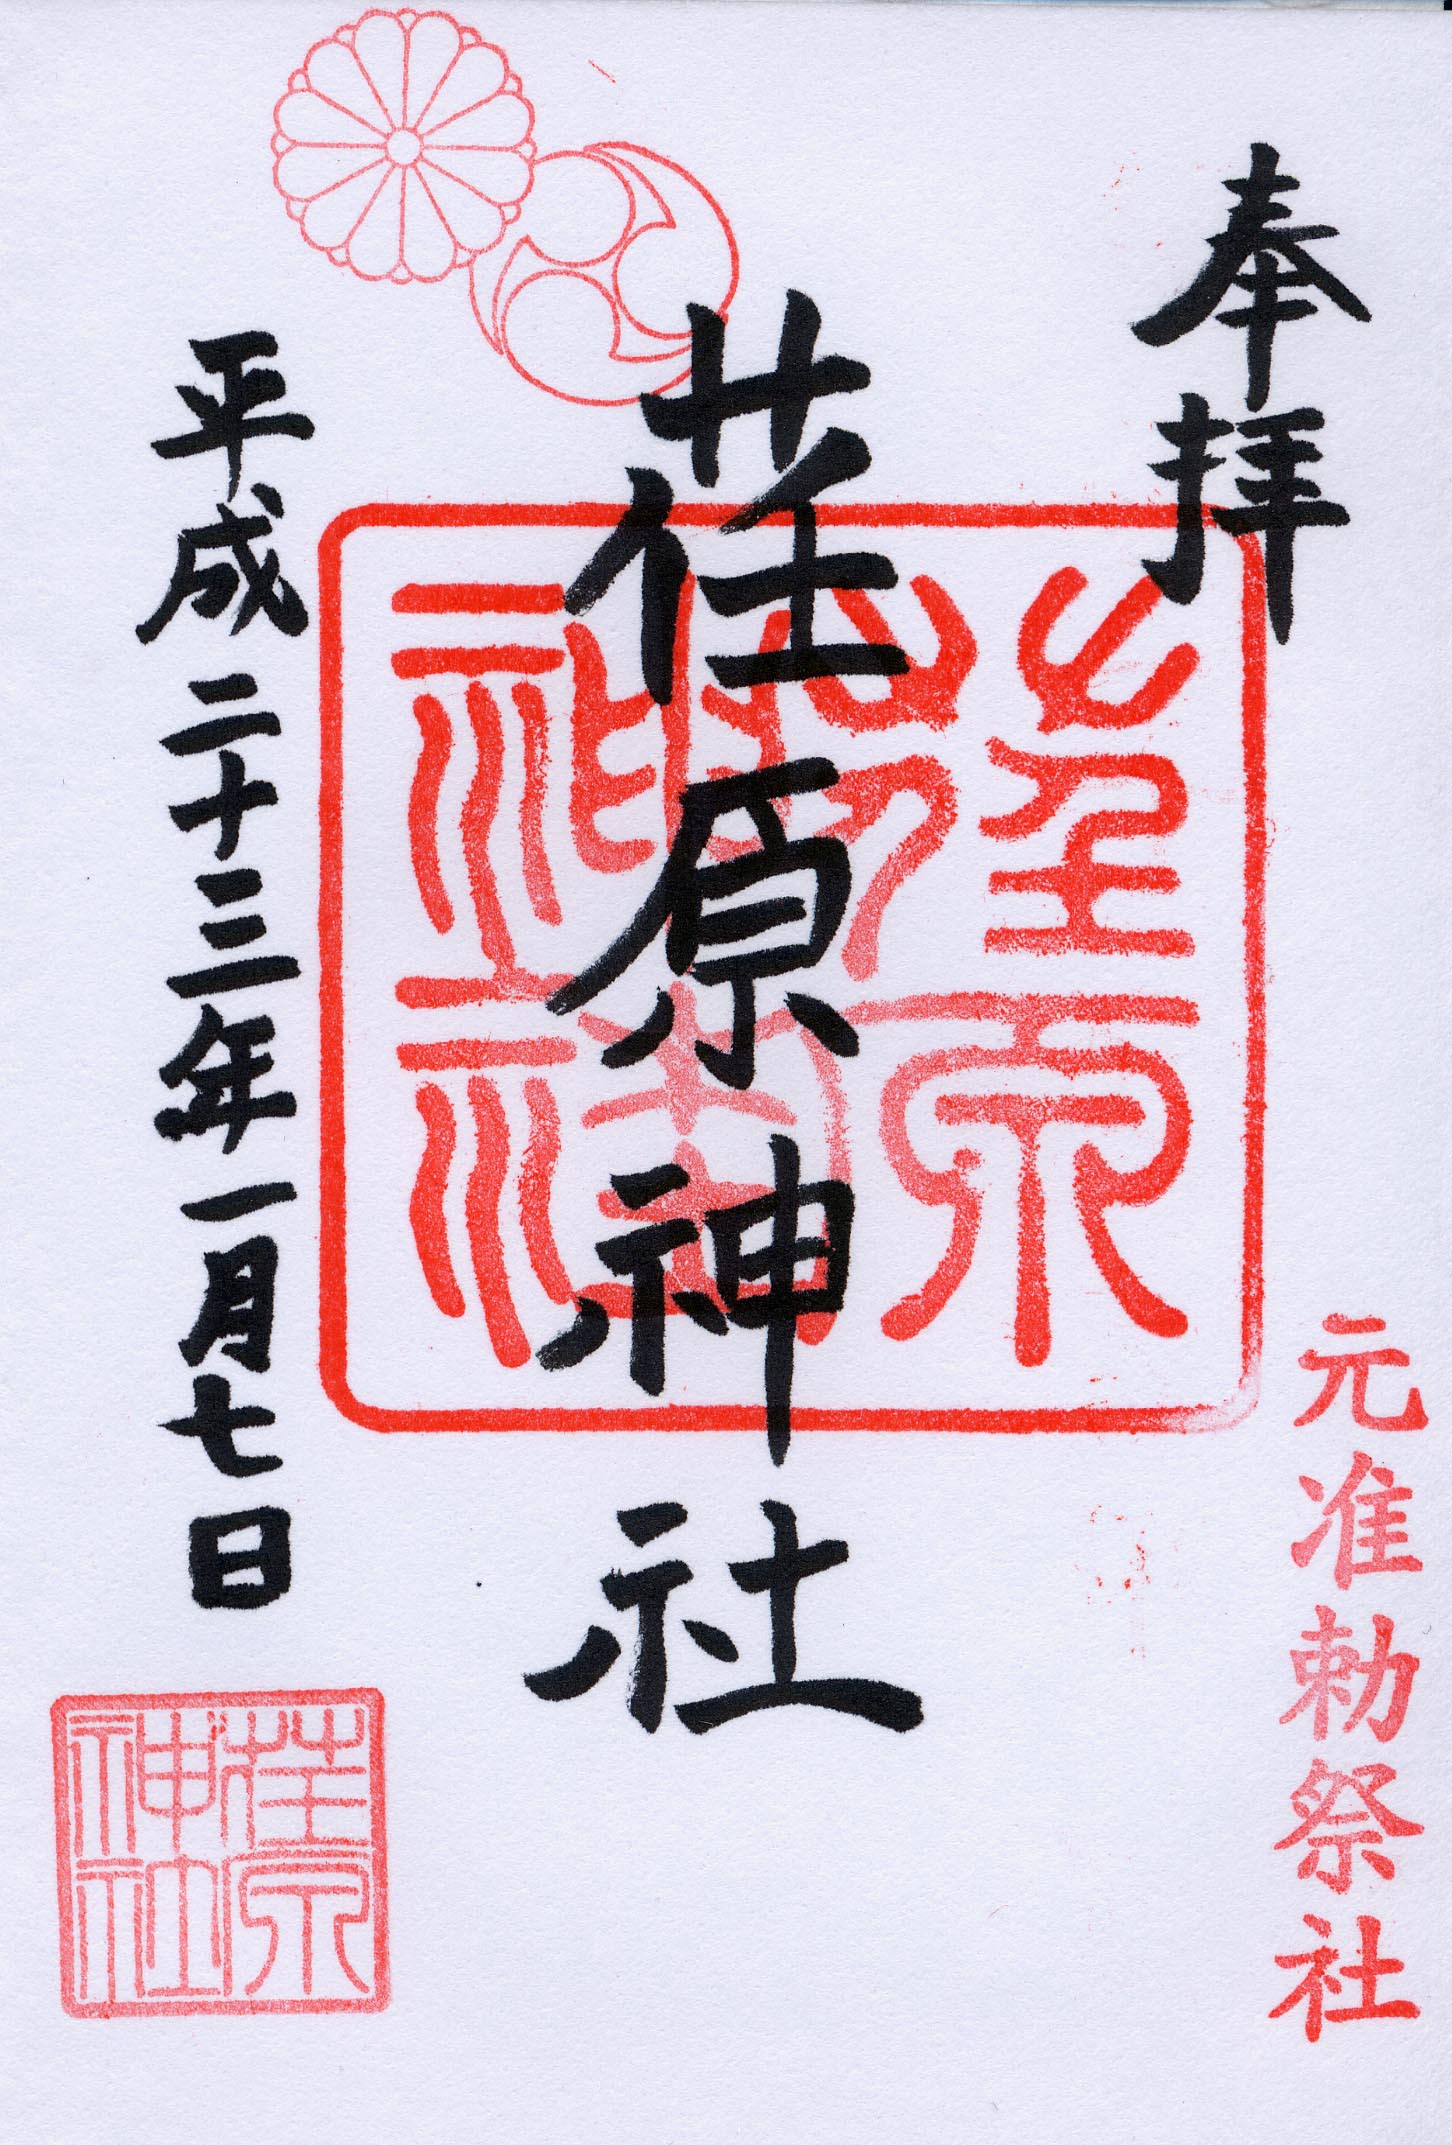 奉拝
元准勅祭社
荏原神社
荏原神社
平成二十三年一月七日
荏原神社